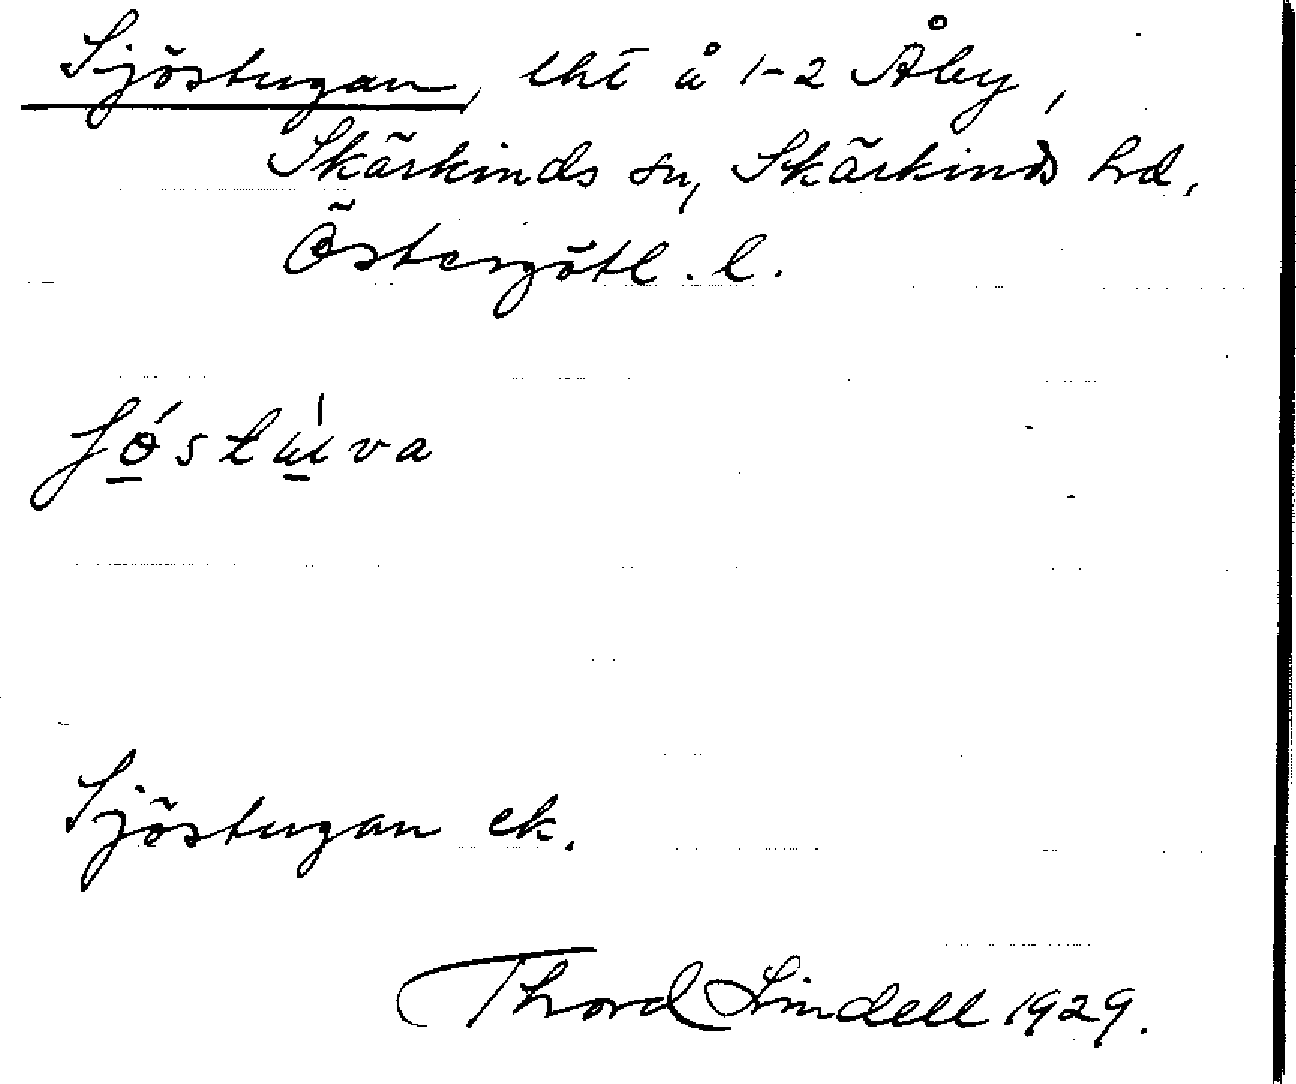 Sjöstugan, lht å 1-2 Åby,
Skärkinds sn, Skärkinds hd,
Östergötl. l.
Sjöstugan ek.
Thord Lindell 1929.